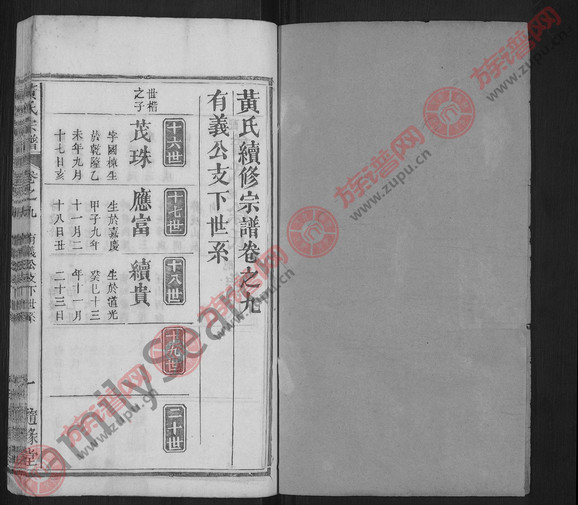 黃氏續修宗譜卷之九
有義公支下世系
十六世
十七世
十八世
十九世
二十世
世楷
之子
茂珠
字國棟生
於乾隆乙
未年九月
十七日亥
應富
生於嘉慶
甲子九年
十一月二
十八日丑
續貴
生於道光
癸巳十三
年十一月
二十三日
黃氏宗譜
卷之九
有義公支下世系
一
隨緣堂
族谱网
www.zupu.cn
Family Search